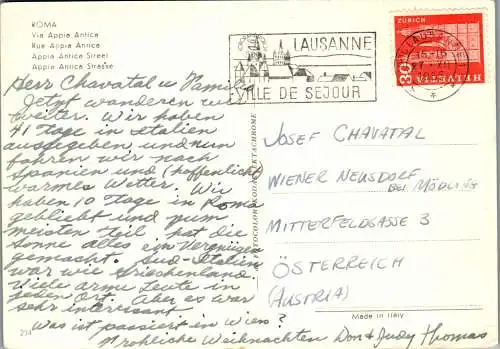 ROMA
Via Appia Antica
Rue Appia Antica
Appia Antica Street
Appia Antica Strasse
LAUSANNE
VILLE DE SEJOUR
ZÜRICH
30
HELVETIA
Herr Chavatal u
Jetzt wanderen wir
weiter. Wir haben
41 Tage in Italien
ausgegeben und nun
fahren wir nach
Spanien und (hoffentlich)
warmes Wetter. Wir
haben 10 Tage in Roma
gebliebt und zum
meisten Teil hat die
Sonne alles ein Vernügen
gemacht. Sud-Italien
war wie Griechenland.
Viele arme Leute in
jeden Ort. Aber es war
sehr interessant
Was ist passiert in Wien?
Frohliche Weihnachten Don & Judy Thomas
JOSEF CHAVATAL
WIENER NEUSDORF
BEI MÖDLING
MITTERFELDGASSE 3
ÖSTERREICH
(AUSTRIA)
KODAK EKTACHROME
Made in Italy